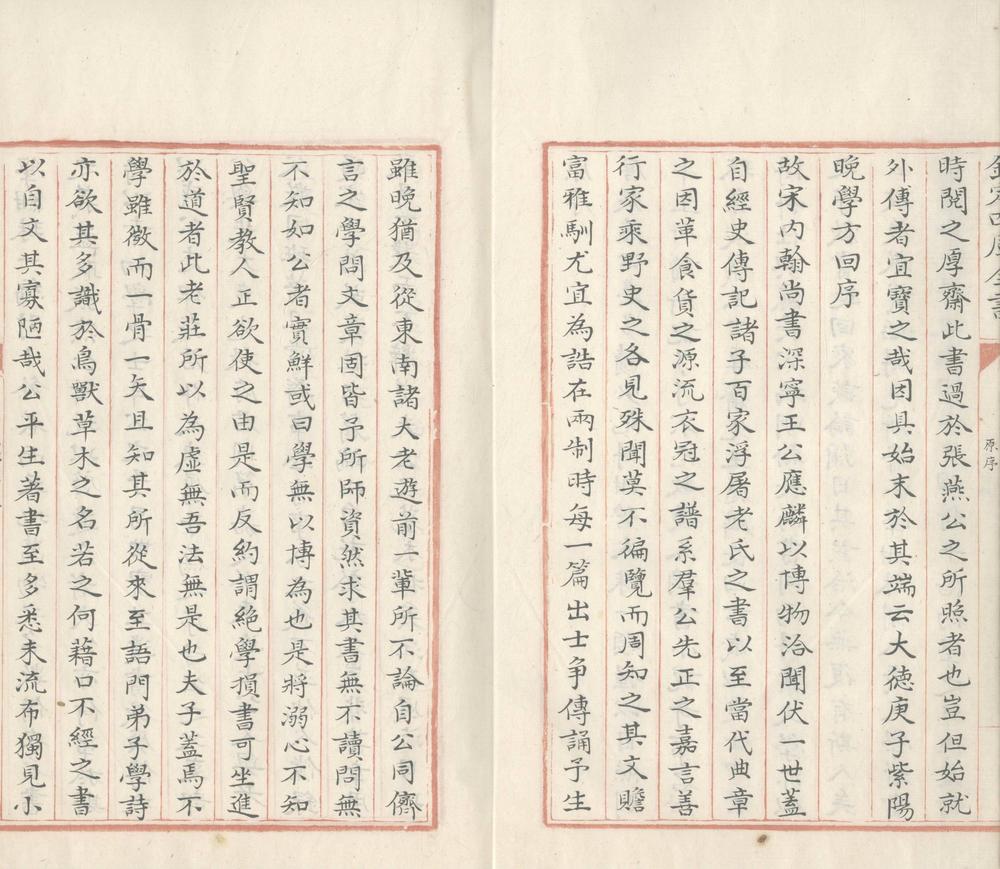 欽定四庫全書
原序
時閱之厚齋此書過於張燕公之所照者也豈但始就
外傳者宜寶之哉因具始末於其端云大德庚子紫陽
晚學方回序
故宋内翰尚書深寧王公應麟以博物洽聞伏一世蓋
自經史傳記諸子百家浮屠老氏之書以至當代典章
之因革食貨之源流衣冠之譜系羣公先正之嘉言善
行家乘野史之各見殊聞莫不徧覽而周知之其文贍
富雅馴尤宜為誥在兩制時每一篇出士争傳誦予生
雖晚猶及從東南諸大老遊前一輩所不論自公同儕
言之學問文章固皆予所師資然求其書無不讀問無
不知如公者實鮮或曰學無以博為也是將溺心不知
聖賢教人正欲使之由是而反約謂絶學損書可坐進
於道者此老莊所以為虚無吾法無是也夫子蓋焉不
學雖微而一骨一矢且知其所從來至語門弟子學詩
亦欲其多識於鳥獸草木之名若之何藉口不經之書
以自文其寡陋哉公平生著書至多悉未流布獨見小